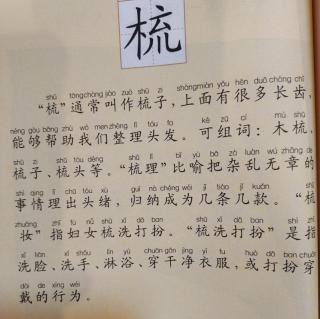 梳
shū tōngcháng jiào zuò shū zi shàngmiàn yǒu hěn duō cháng chǐ
“梳”通常叫作梳子，上面有很多长齿，
néng gòu bāng zhù wǒ men zhěng lǐ tóu fa kě zǔ cí mù shū
能够帮助我们整理头发。可组词：木梳、
shū zi shū tóu děng shū lǐ bǐ yù bǎ zá luàn wú zhāng de
梳子、梳头等。“梳理”比喻把杂乱无章的
shì qing lǐ chū tóu xù guī nà chéng wéi jǐ tiáo jǐ kuǎn shū
事情理出头绪，归纳成为几条几款。“梳
zhuāng zhǐ fù nǚ shū xǐ dǎ ban shū xǐ dǎ ban shì zhǐ
妆”指妇女梳洗打扮。“梳洗打扮”是指
xǐ liǎn xǐ shǒu lín yù chuān gān jìng yī fu huò dǎ ban chuān
洗脸、洗手、淋浴、穿干净衣服，或打扮穿
dài de xíng wéi
戴的行为。